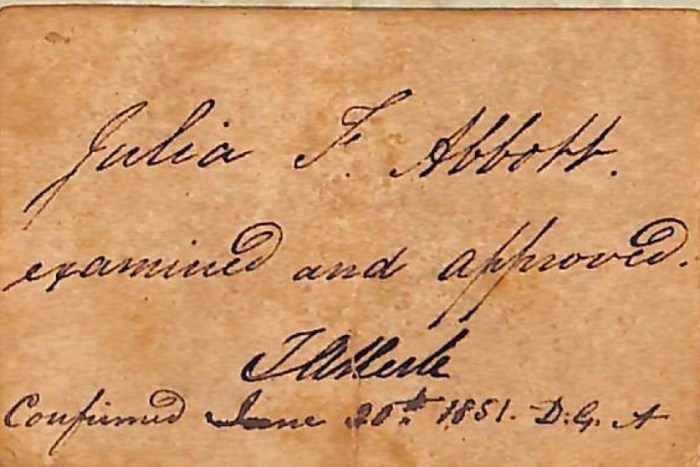 Julia F. Abbott.
examined and approved.
Confirmed June 20th 1851. D. G. A